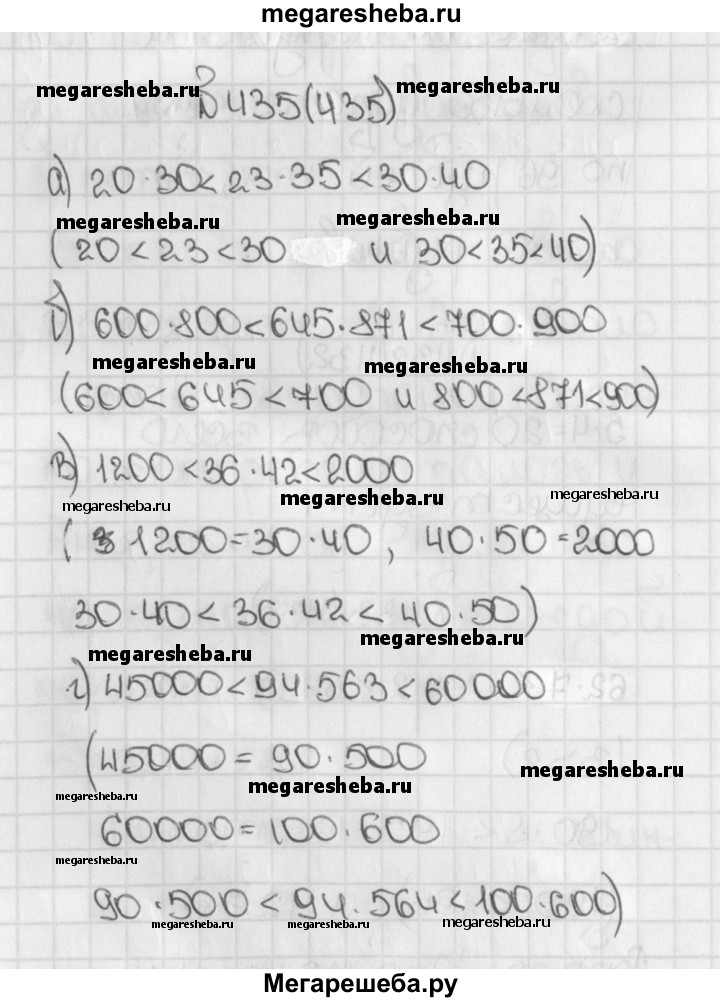 megaresheba.ru
megaresheba.ru
№435(435) megaresheba.ru
а) 20·30<23·35<30·40
megaresheba.ru megaresheba.ru
(20<23<30 и 30<35<40)
б) 600·800<645·871<700·900
megaresheba.ru megaresheba.ru
(600<645<700 и 800<871<900)
в) 1200<36·42<2000
megaresheba.ru megaresheba.ru megaresheba.ru
(1200=30·40, 40·50=2000
30·40<36·42<40·50)
megaresheba.ru megaresheba.ru
г) 45000<94·563<60000
(45000=90·500
megaresheba.ru megaresheba.ru megaresheba.ru
60000=100·600
megaresheba.ru
90·500<94·564<100·600)
megaresheba.ru megaresheba.ru megaresheba.ru
Мегарешеба.ру